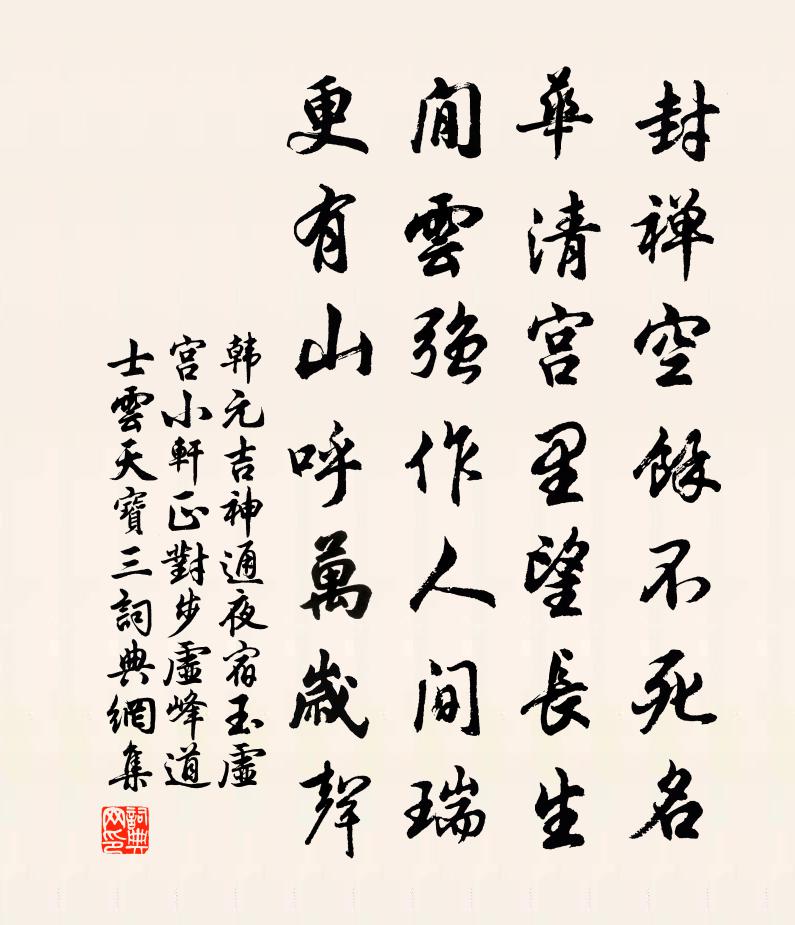 封禅空餘不死名
華清宫里望長生
閒雲強作人間瑞
更有山呼萬歲聲
韩元吉神通夜宿玉虛
宫小軒正對步虛峰道
士雲天寶三詞典網集
詞典網印